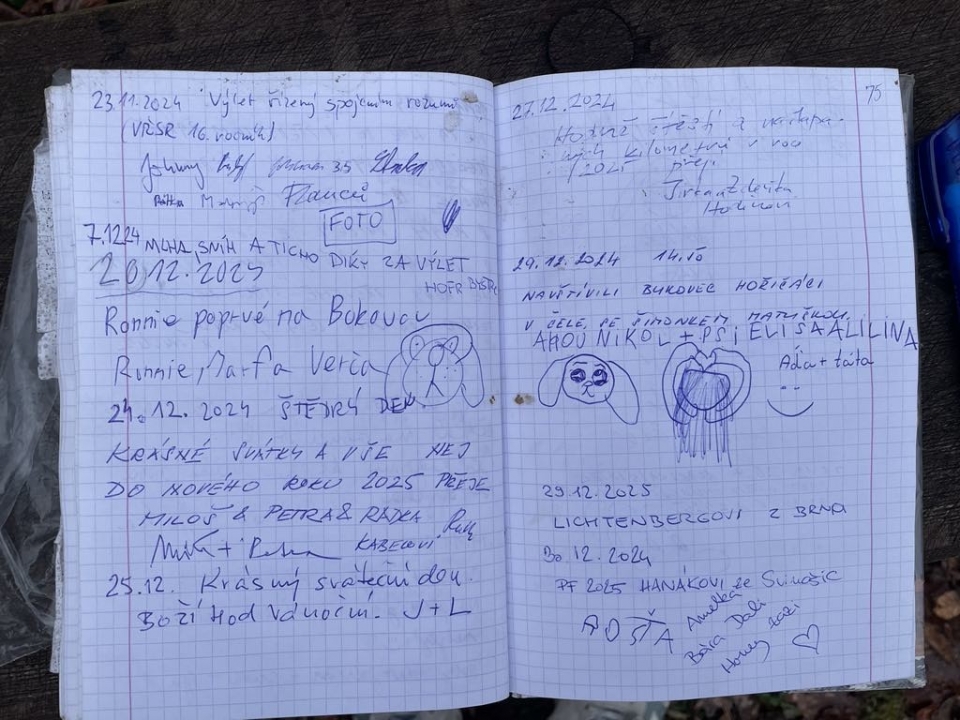 23.11.2024 Výlet řízený spojením rozumu
(VŘSR 16. ročník)
Johnny 35
FOTO
7.12.24 MLHA, SNÍH A TICHO DÍKY ZA VÝLET
20.12.2024
Ronnie poprvé na Bukovci
Ronnie, Marťa Verča
24. 12. 2024 ŠTĚDRÝ DEN
KRÁSNÉ SVÁTKY A VŠE NEJ
DO NOVÉHO ROKU 2025 PŘEJE
MILOŠ & PETRA & RADKA
KABELOVI
25.12. Krásný sváteční den.
Boží Hod Vánoční. J+L
75
27.12.2024
Hodně štěstí a našlapa-
ných kilometrů v roce
2025 přejí
29.12.2024 14.15
NAVŠTÍVILI BUKOVEC HOŘIČÁCI
V ČELE SE ŠIMONKEM MATUŠKOU.
AHOJ NIKOL + PSI ELIŠAALILINA
Áďa + táta
29.12.2025
LICHTENBERGOVI Z BRNA
30.12.2024
PF 2025 HANÁKOVI ze
Amelka
Bára